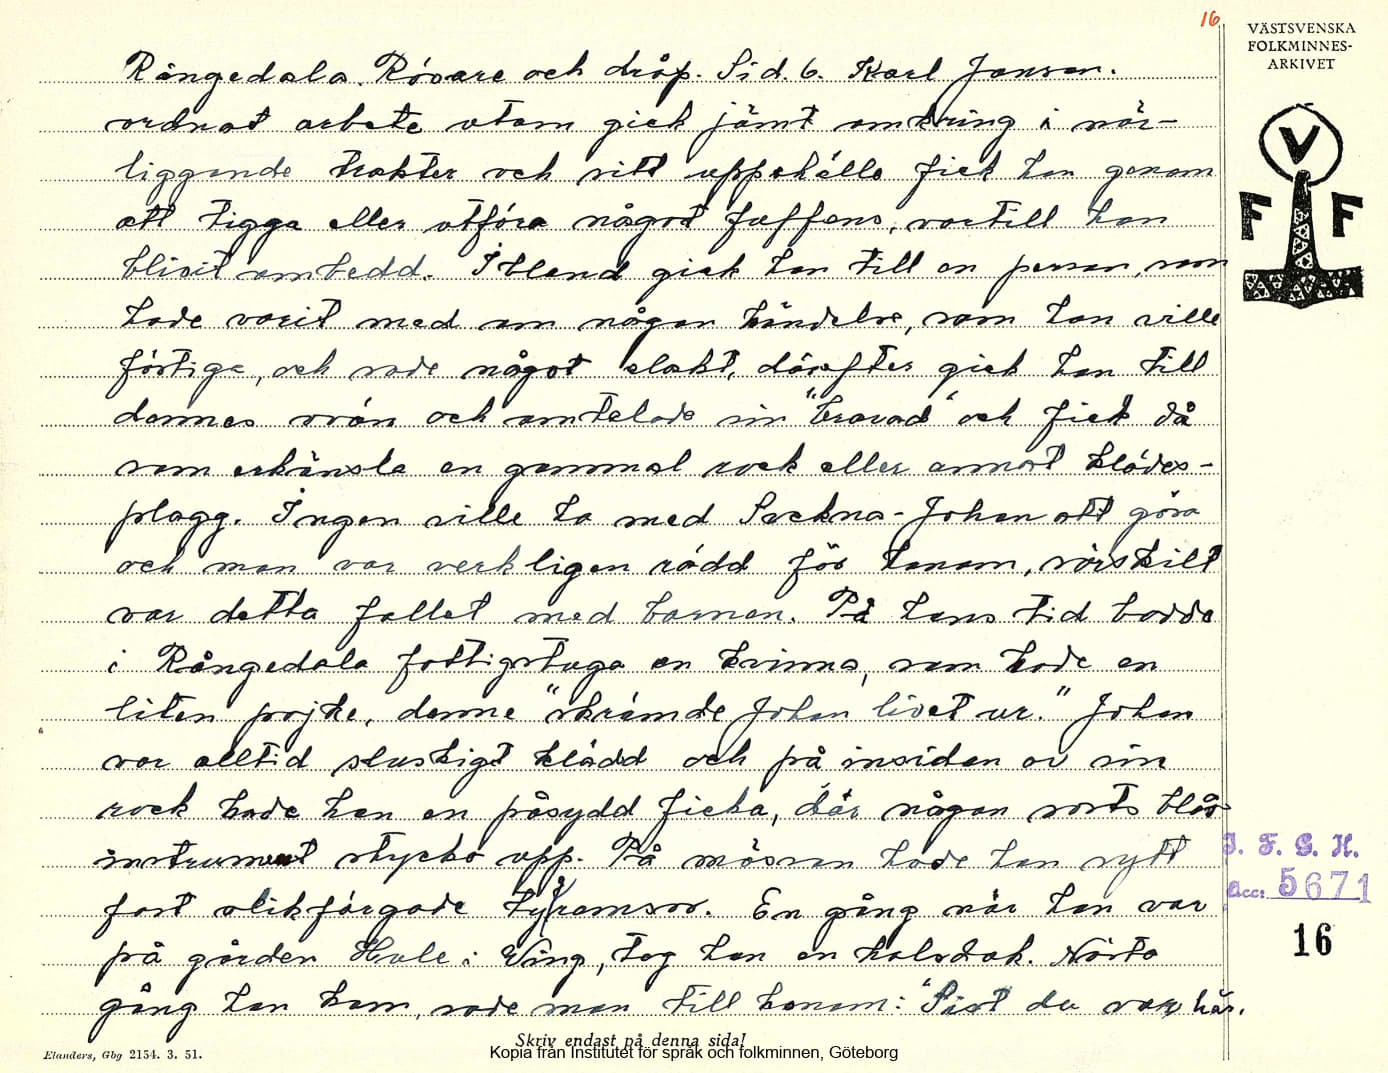 16
VÄSTSVENSKA
FOLKMINNES-
ARKIVET
V
F F
Rångedala. Rövare och dråp. Sid. 6. Karl Jonson.
ordnat arbete utom gick jämt omkring i när-
liggande trakter och sitt uppehälle fick han genom
att tigga eller utföra något faffens, vartill han
blivit ombedd. Ibland gick han till en person, som
hade varit med om någon händelse, som han ville
förtiga, och sade något elakt, därefter gick han till
dennes ovän och omtalade sin "bravad" och fick då
som erkänsla en gammal rock eller annat klädes-
plagg. Ingen ville ha med Svekna-Johan att göra
och man var verkligen rädd för honom, särskilt
var detta fallet med barnen. På hans tid bodde
i Rångedala fattigstuga en kvinna, som hade en
liten pojke, denne "skrämde Johan livet ur." Johan
var alltid sluskigt klädd och på insidan av sin
rock hade han en påsydd ficka, där någon sorts blås-
instrument stycko upp. På mössan hade han sytt
fast olikfärgade tygramsor. En gång när han var
på gården Hule i Wing, tog han en halsduk. Nästa
gång han kom, sade man till honom: "Sist du var här.
J. F. G. H.
Acc: 5671
16
Skriv endast på denna sida!
Elanders, Gbg 2154. 3. 51.
Kopia från Institutet för språk och folkminnen, Göteborg